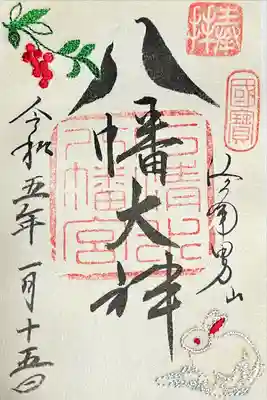 奉拝
國寶
八幡大神
男山
石清水八幡宮
令和五年一月十五日